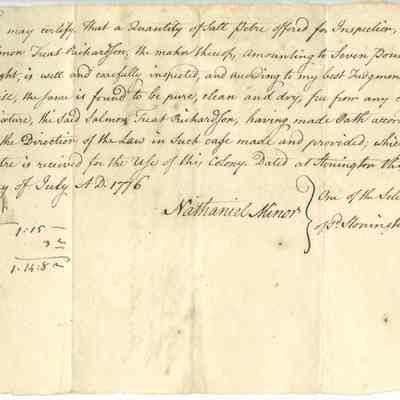 may certify, That a Quantity of Salt Petre offered for Inspection,
Treat Richardson, the maker thereof, amounting to Seven Pou
ght, is well and carefully inspected, and according to my best Judgmen
the same is found to be pure, clean and dry, free from any
ixture, the Said Salmon Treat Richardson, having made Oath accor
the Direction of the Law in Such case made and provided, whic
tre is received for the Use of this Colony. Dated at Stonington th
y of July A.D. 1776
Nathaniel Minor
One of the Sele
of Stoningt
1-15
3
1-14-8